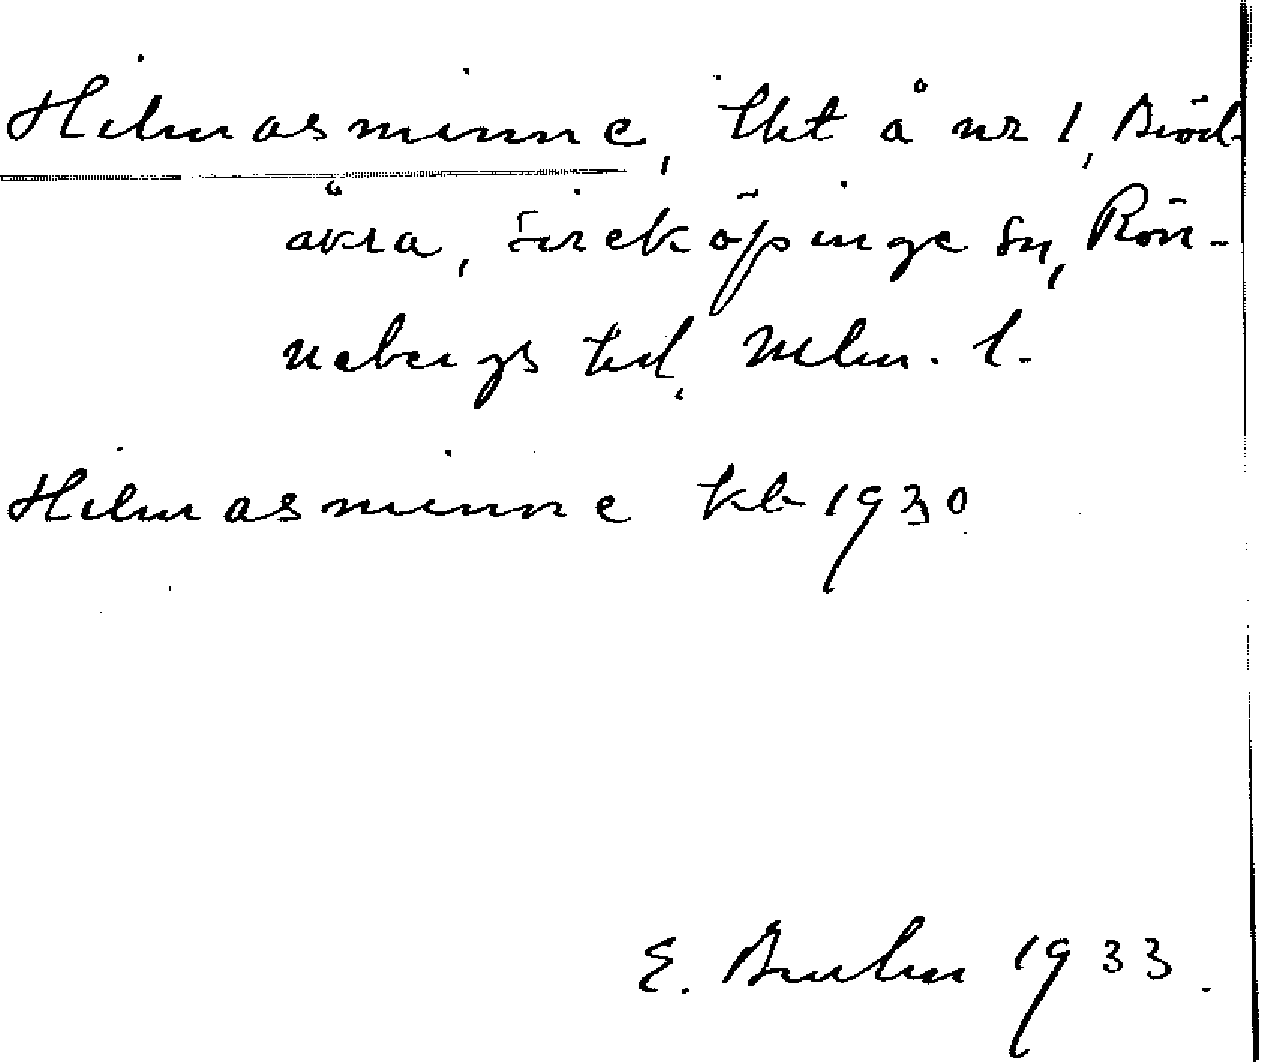 Hilmasminne, lht å nr 1, Bröd-
åkra, Sireköpinge sn, Rön-
nebergs hd, Mlm. l.
Hilmasminne kb 1930
E. Bruhn 1933.